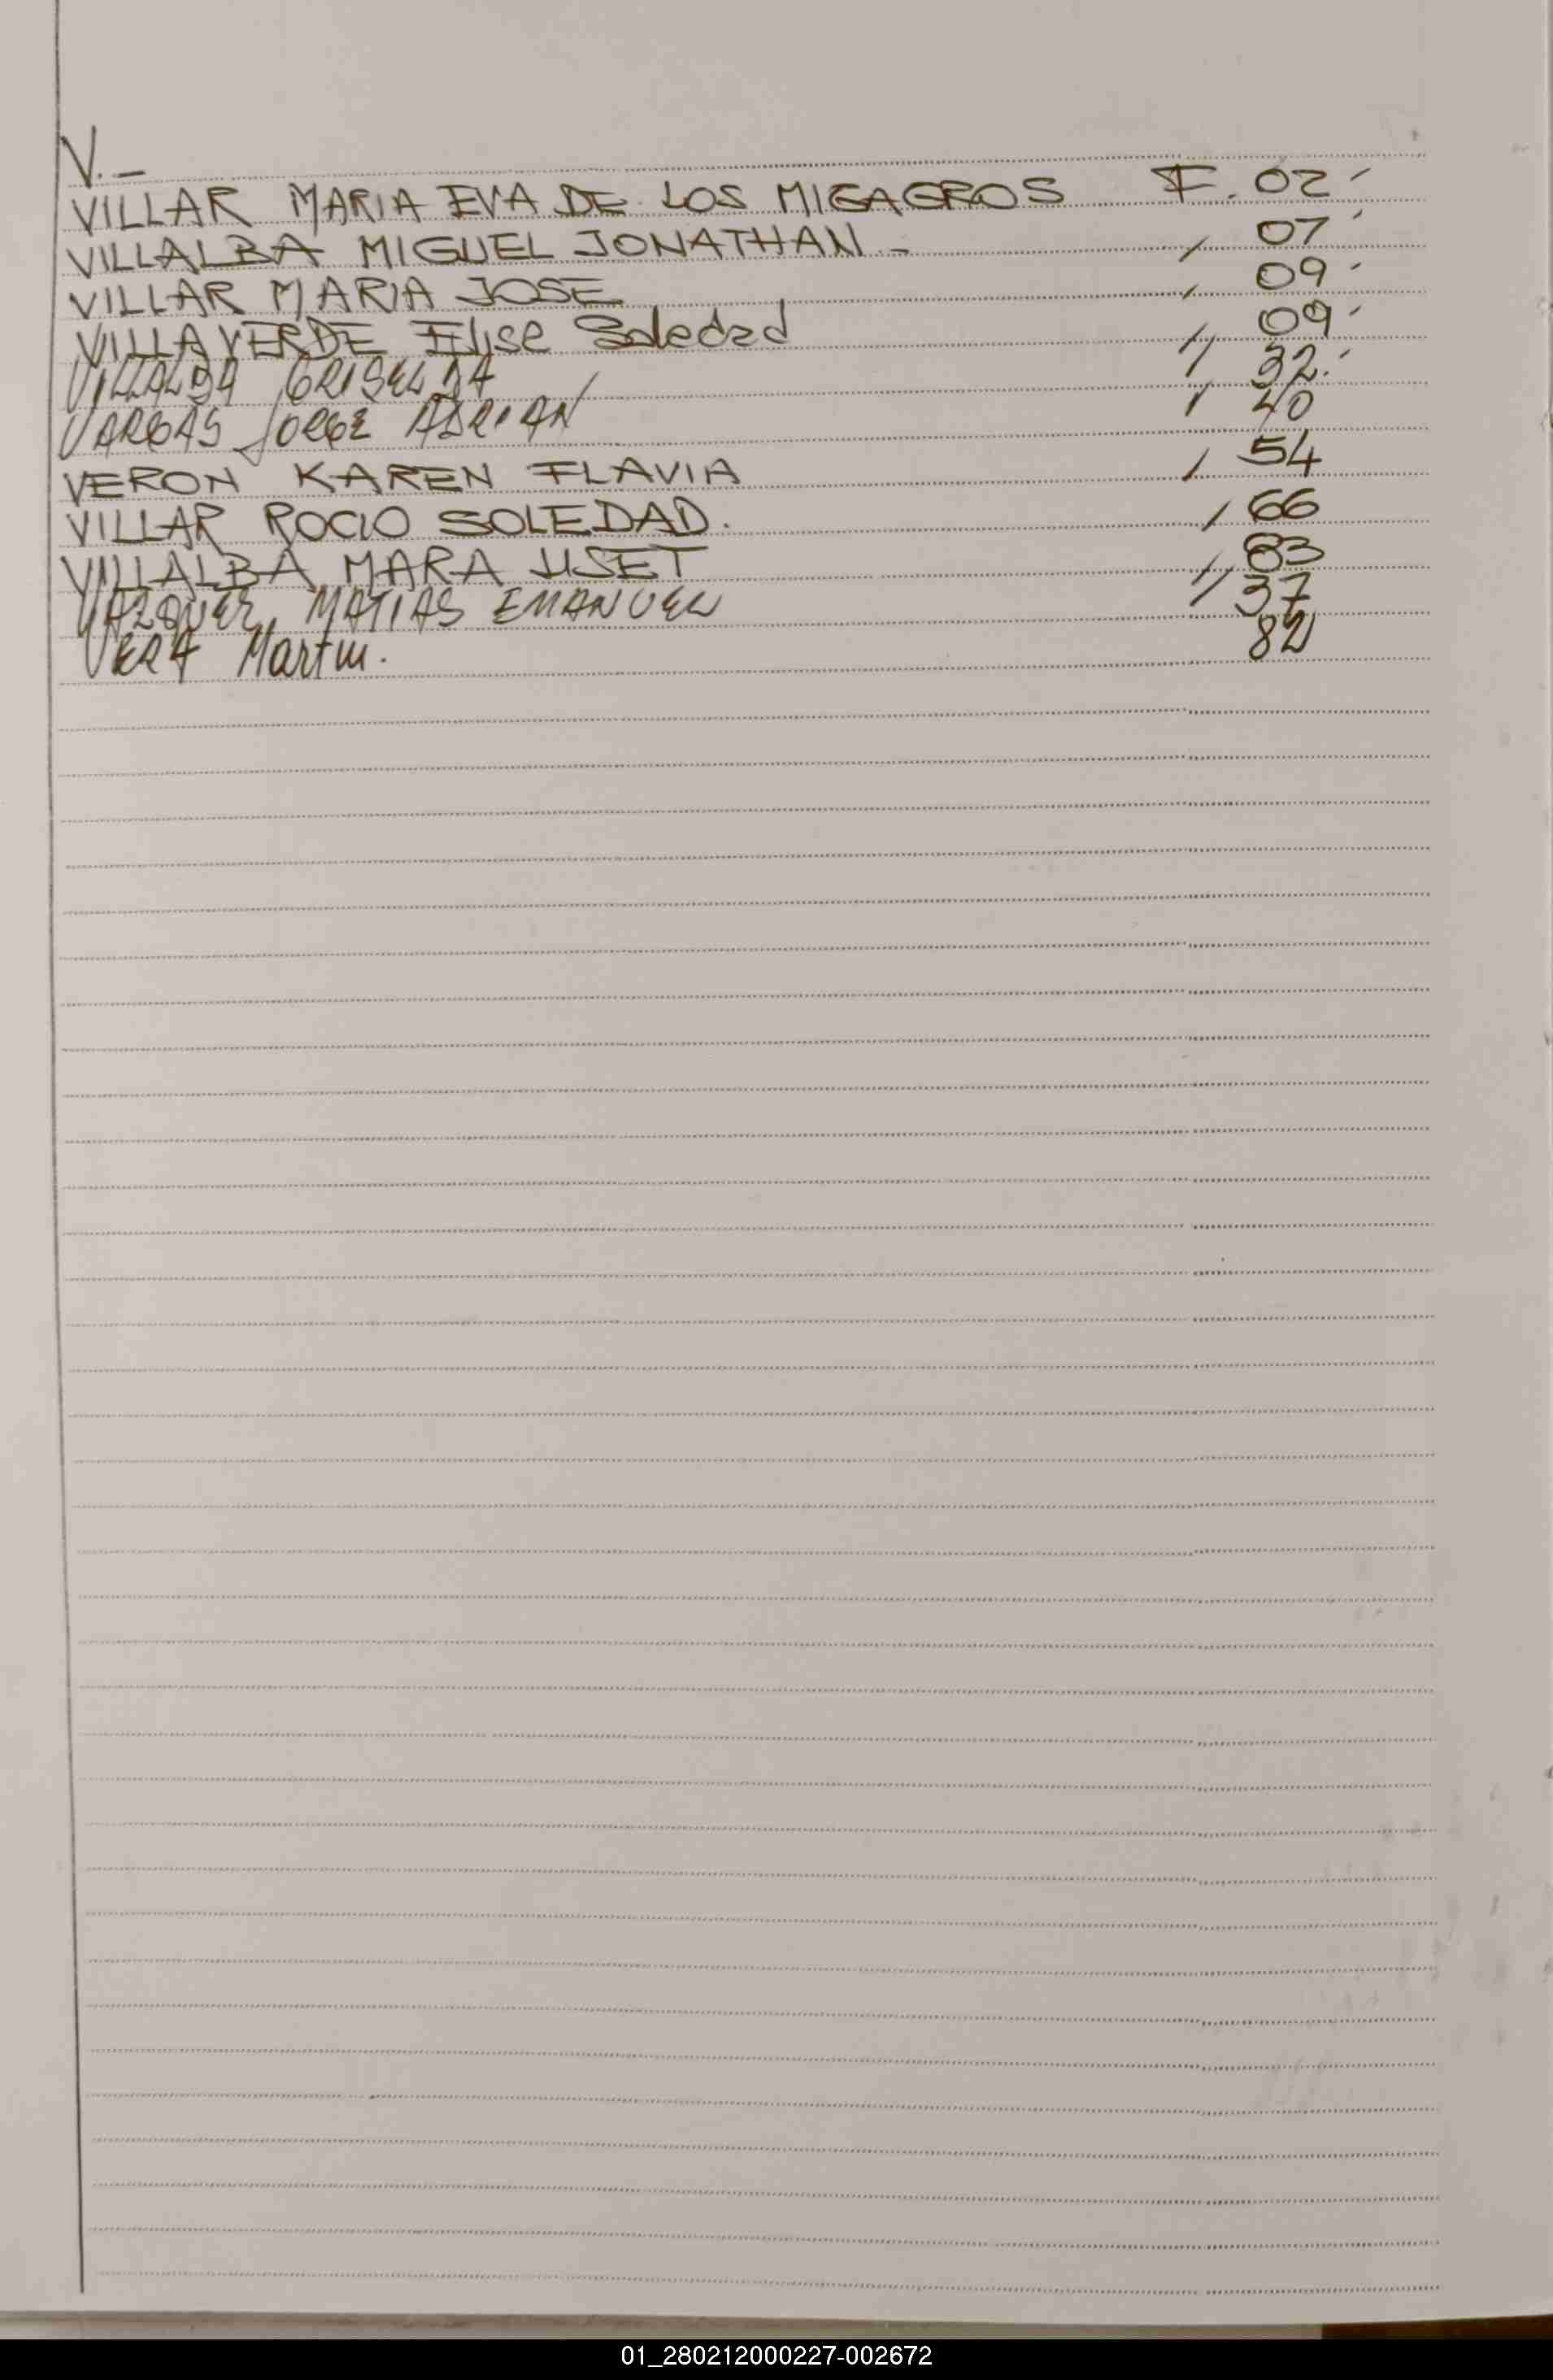 V.-
VILLAR MARIA EVA DE LOS MIGAGROS F. 02 -
VILLALBA MIGUEL JONATHAN - , 07 '
VILLAR MARIA JOSE , 09 -
VILLAVERDE Elise Soledad 09 -
VILLALBA GRISELDA 1, 32. -
VARGAS JORGE ADRIAN 40
VERON KAREN FLAVIA , 54
VILLAR ROCIO SOLEDAD. , 66
VILLALBA MARA LISET , 83
VAZQUEZ, MATIAS EMANUEL 1/ 37
VERA Martin. 82
01_280212000227-002672